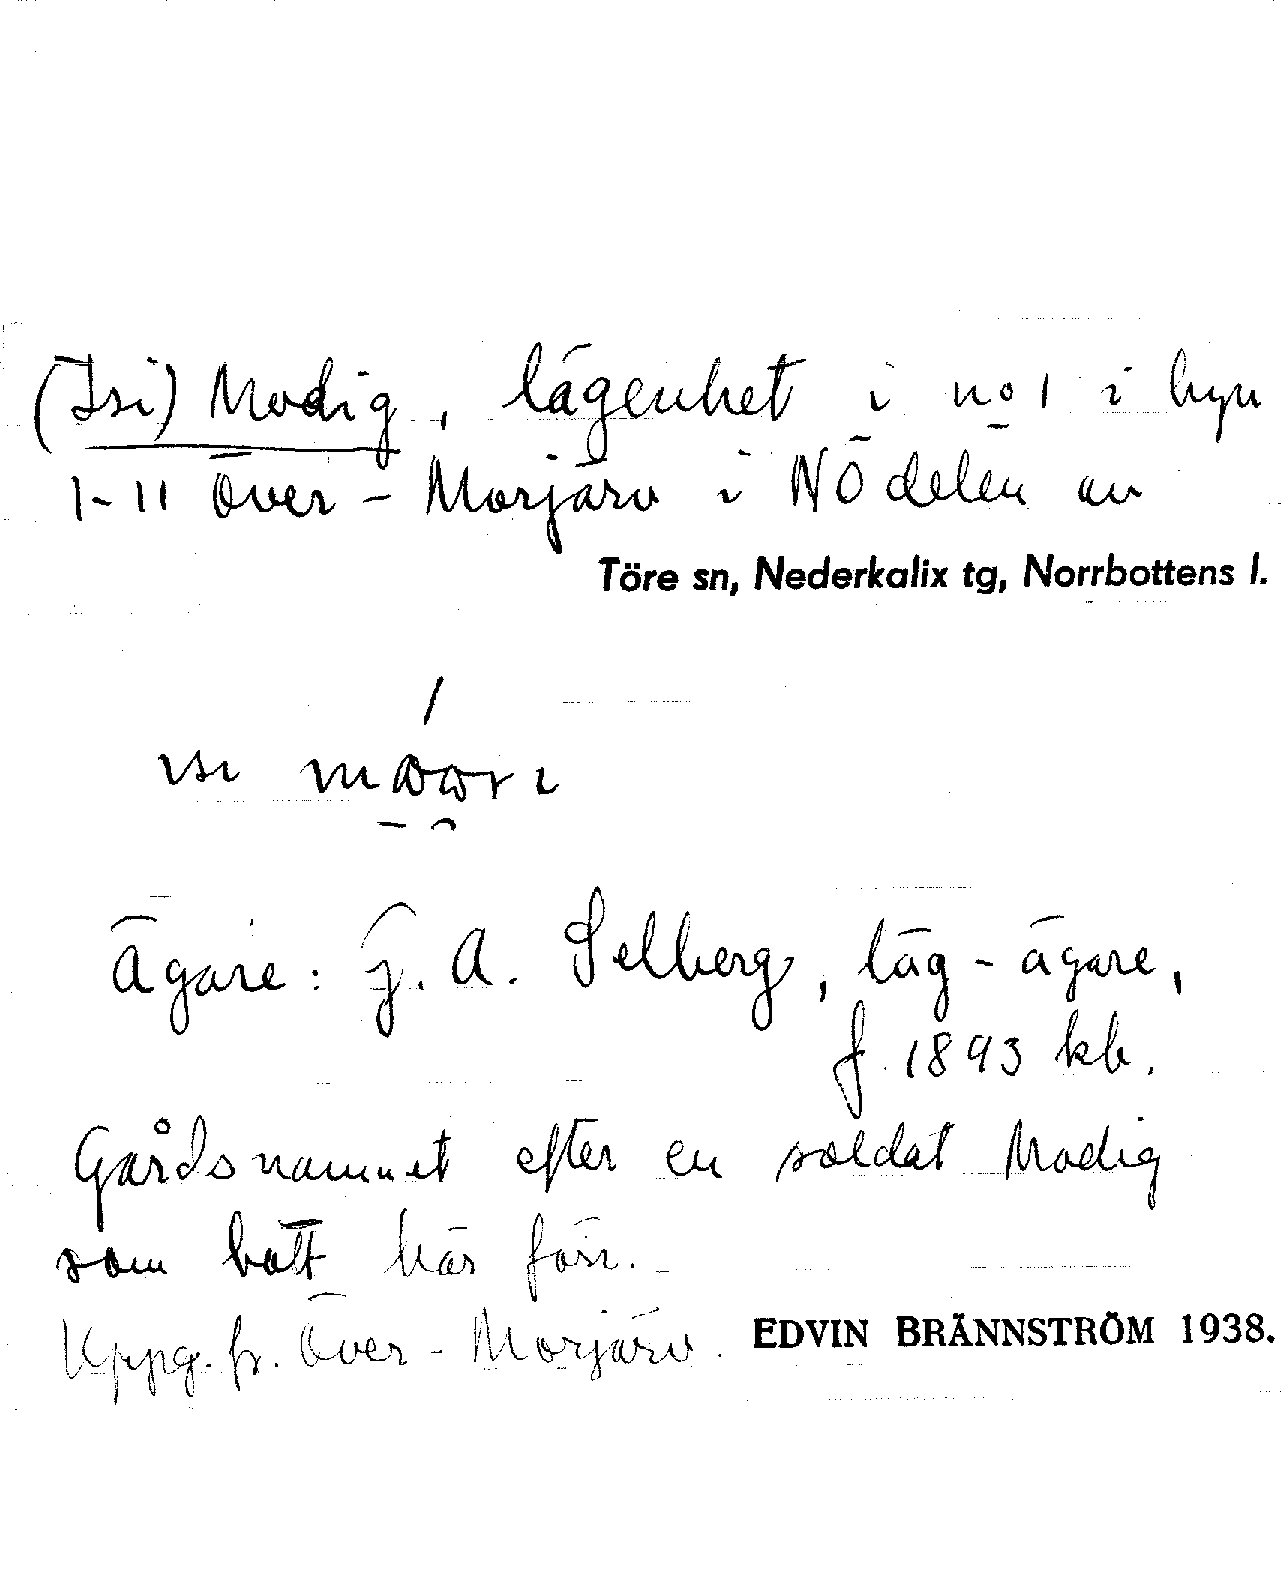 (Isi) Modig, lägenhet i no 1 i byn
1-11 Över-Morjärv i NÖ delen av
Töre sn, Nederkalix tg, Norrbottens l.
ɪsɪ
Ägare: J. A. Selberg, läg-ägare,
f. 1893 kb.
Gårdsnamnet efter en soldat Modig
som bott här förr.
Uppg. fr. Över-Morjärv. EDVIN BRÄNNSTRÖM 1938.